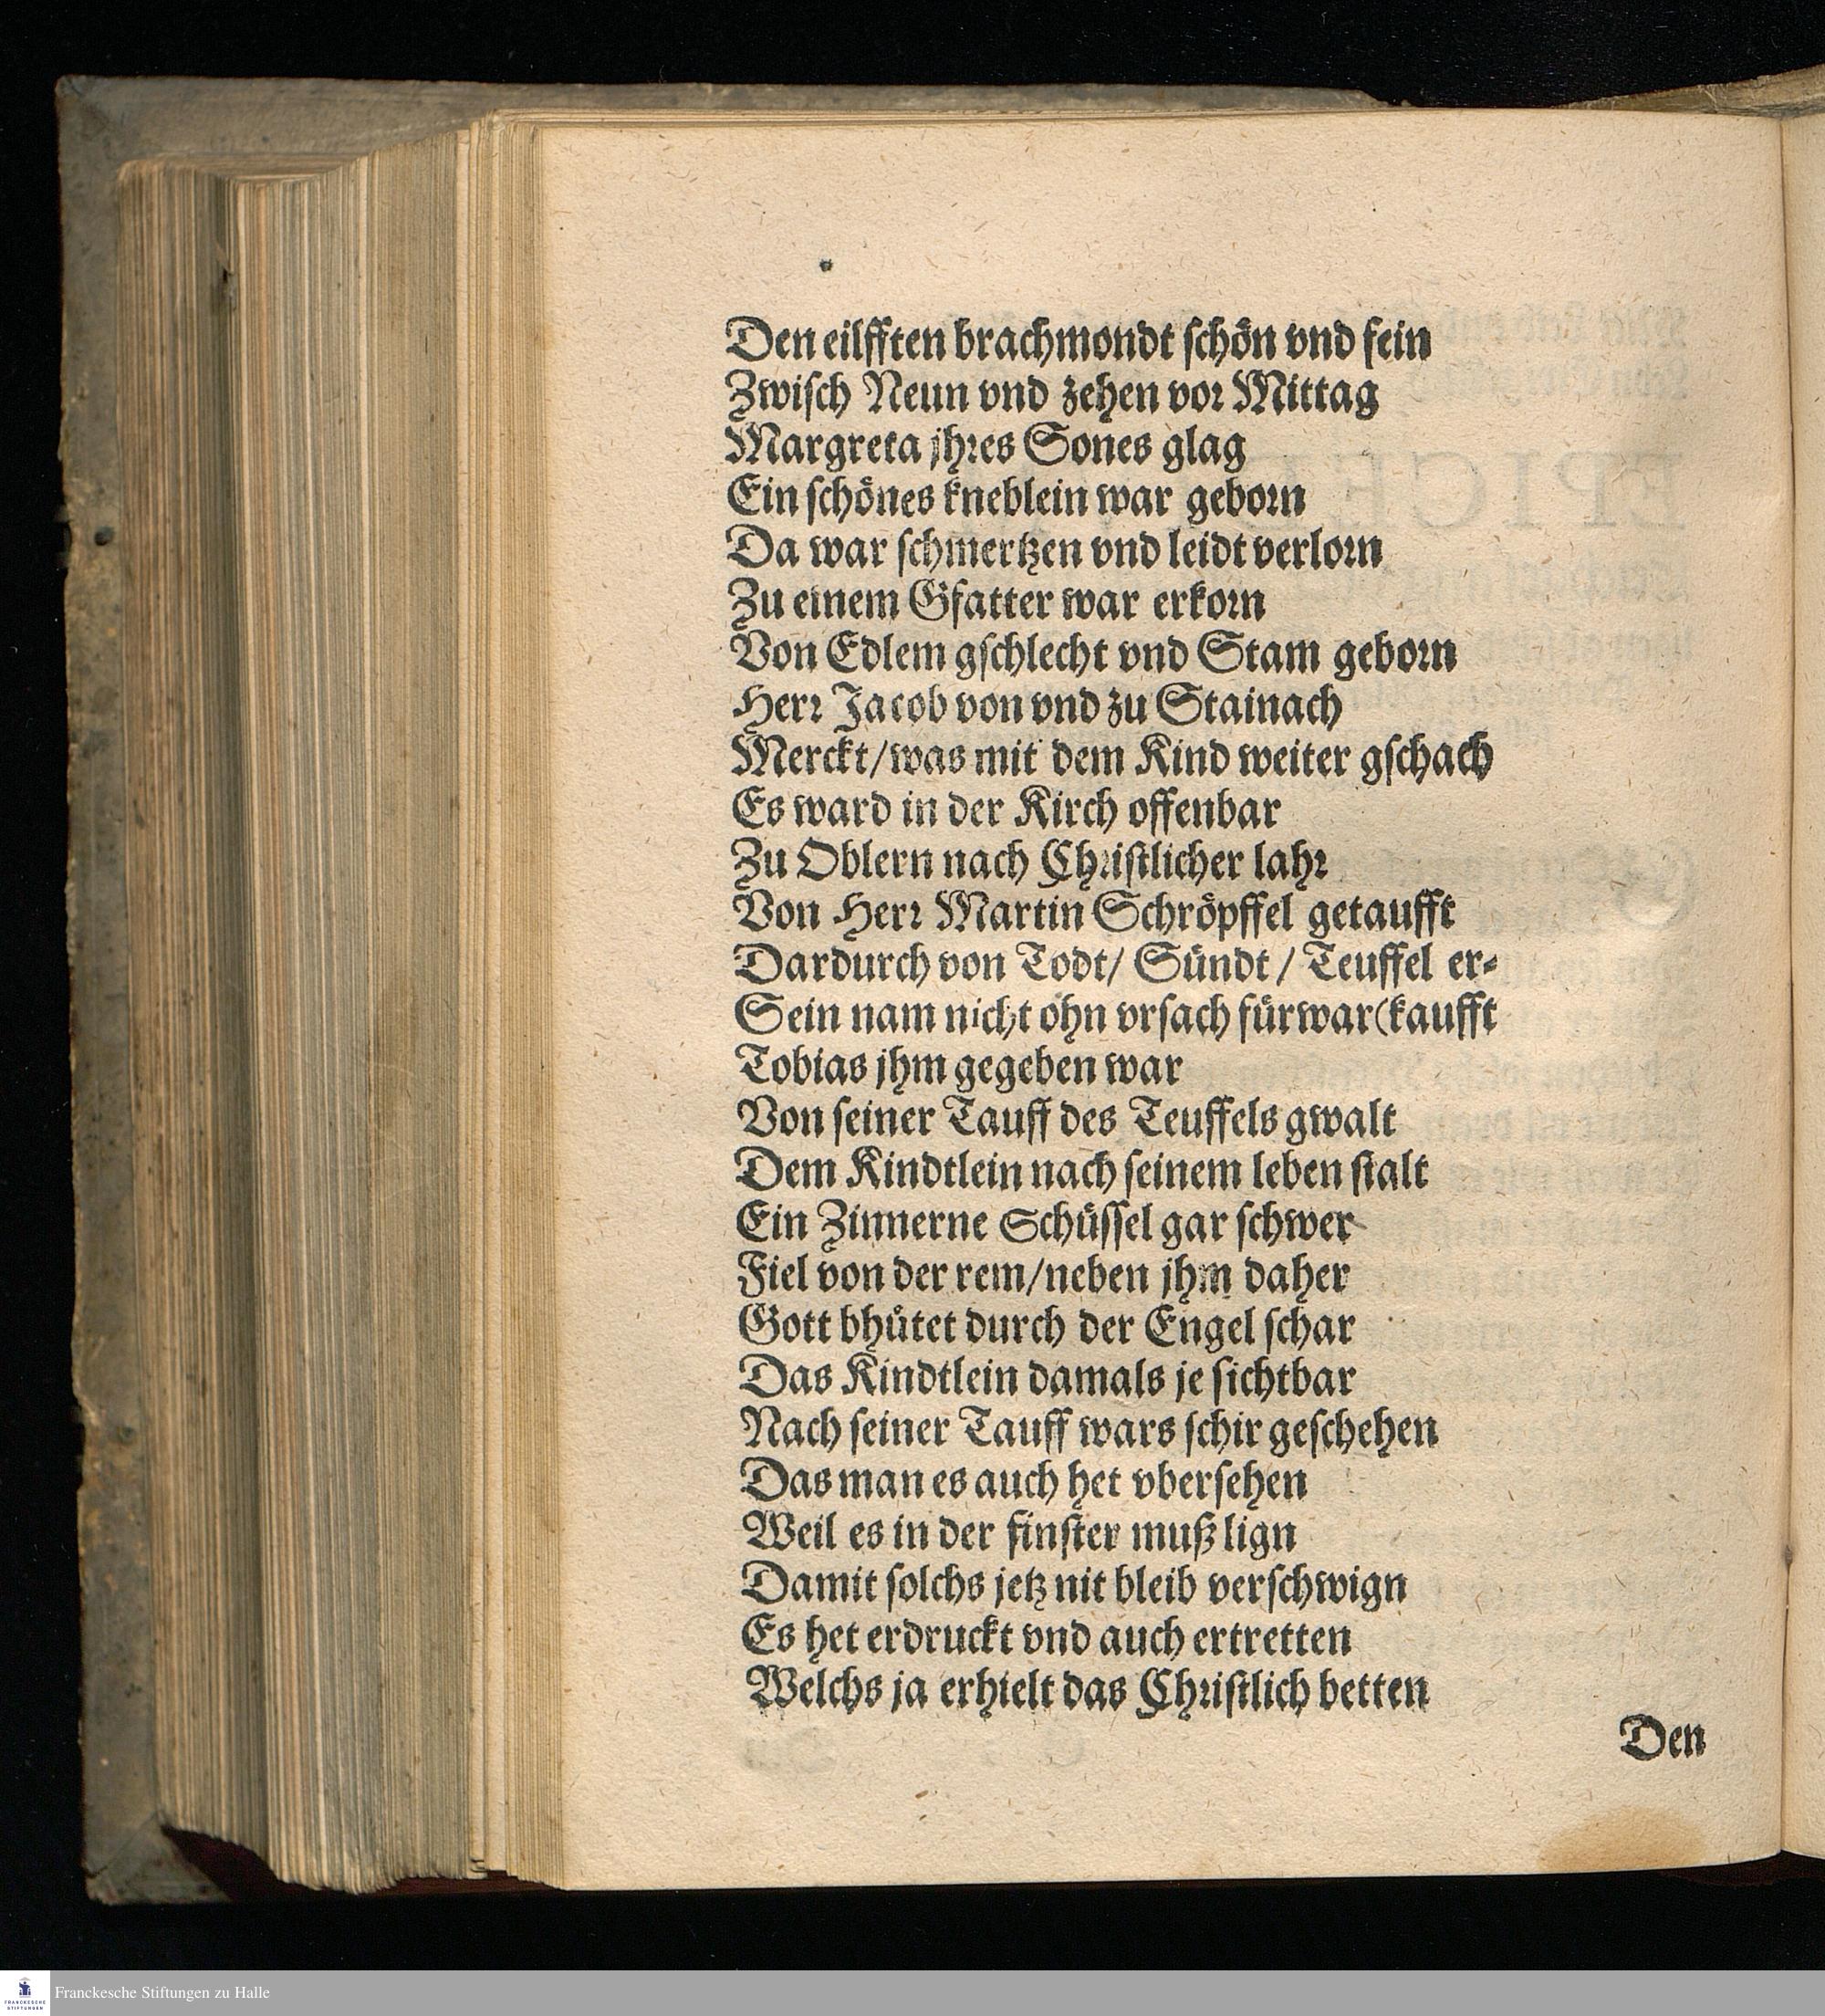 Den eilfften brachmondt ſchön vnd fein
Zwiſch Neun vnd zehen vor Mittag
Margreta jhres Sones glag
Ein ſchönes kneblein war geborn
Da war ſchmertzen vnd leidt verlorn
Zu einem Gfatter war erkorn
Von Edlem gſchlecht vnd Stam geborn
Herr Jacob von vnd zu Stainach
Merckt/was mit dem Kind weiter gſchach
Es ward in der Kirch offenbar
Zu Oblern nach Chriſtlicher lahr
Von Herr Martin Schröpffel getaufft
Dardurch von Todt/ Sündt / Teuffel er-
Sein nam nicht ohn vrſach fürwar(kaufft
Tobias jhm gegeben war
Von ſeiner Tauff des Teuffels gwalt
Dem Kindtlein nach ſeinem leben ſtalt
Ein Zinnerne Schüſſel gar ſchwer
Fiel von der rem/neben jhm daher
Gott bhütet durch der Engel ſchar
Das Kindtlein damals je ſichtbar
Nach ſeiner Tauff wars ſchir geſchehen
Das man es auch het vberſehen
Weil es in der finſter muß lign
Damit ſolchs jetz nit bleib verſchwign
Es het erdruckt vnd auch ertretten
Welchs ja erhielt das Chriſtlich betten
Den
FRANCKESCHE
STIFTUNGEN
Franckesche Stiftungen zu Halle